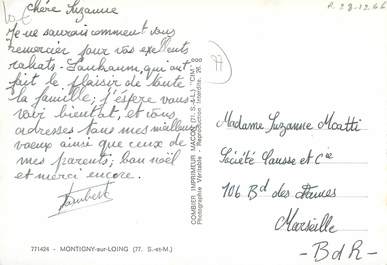 Chère Suzanne
Je ne saurais comment vous
remercier pour vos excellents
rahats-Loukoum, qui ont
fait le plaisir de toute
la famille; j'éspère vous
voir bientot, et vous
adresses tous mes meilleurs
vœux ainsi que ceux de
mes parents; bon noël
et merci encore.
R. 28-12-66
COMBIER IMPRIMEUR MACON (71. S.-&-L.) "CIM"
Photographie Véritable - Reproduction Interdite. 26.
Madame Suzanne Matti
Société et Cie
106 Bd des
Marseille
- B d R -
771424 - MONTIGNY-sur-LOING (77. S.-et-M.)